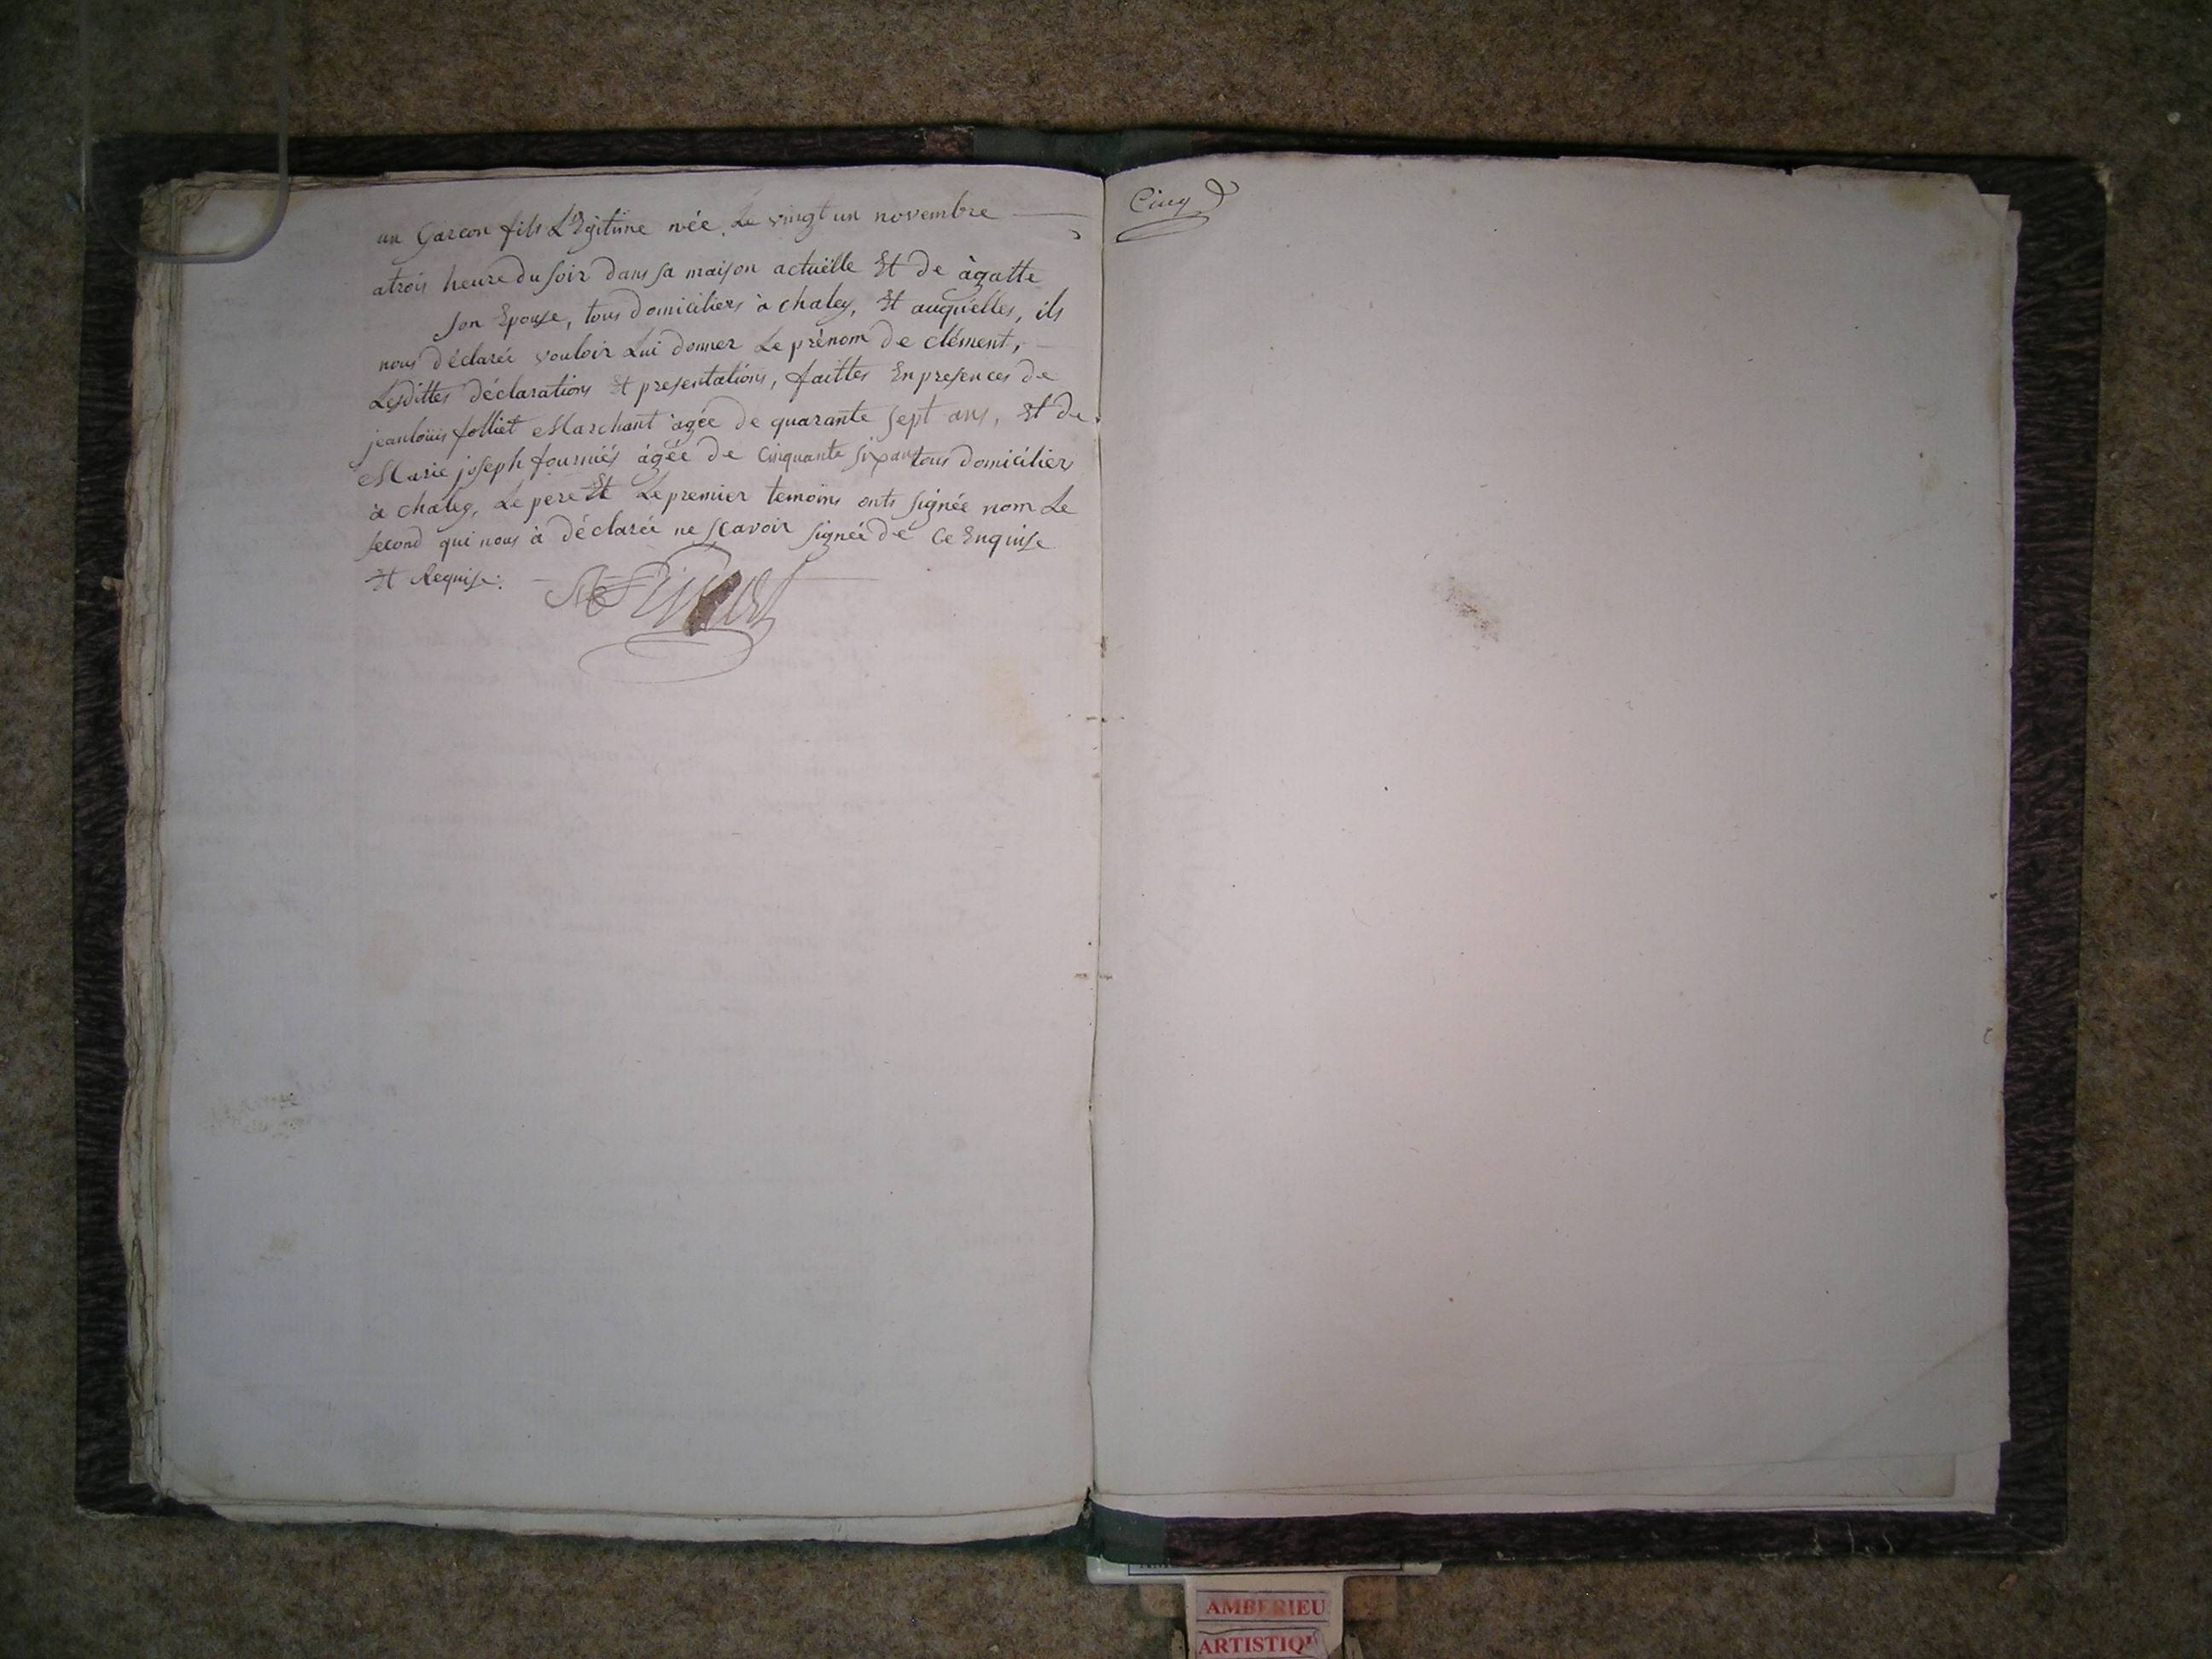 un Garcon fils L'Egitime née, Le vingt un novembre
atrois heure du soir dans sa maison actuëlle Et de àgatte
son Epouse, tous domiciliers à chaley, Et auquélles, ils
nous déclarée vouloir Lui donner Le prénom de clément,
Lesdittes déclarations Et presentations, faittes En presences de
jeanloüis folliet Marchant àgée de quarante sept ans, Et de
Marie joseph fourniés àgée de Cinquante six ans tous domiciliers
à chaley, Le pere Et Le premier temoins onts signée nom Le
second qui nous à déclarée ne sçavoir signée de Ce Enquise
Et Requise.
Cinq
AMBERIEU
ARTISTIQU